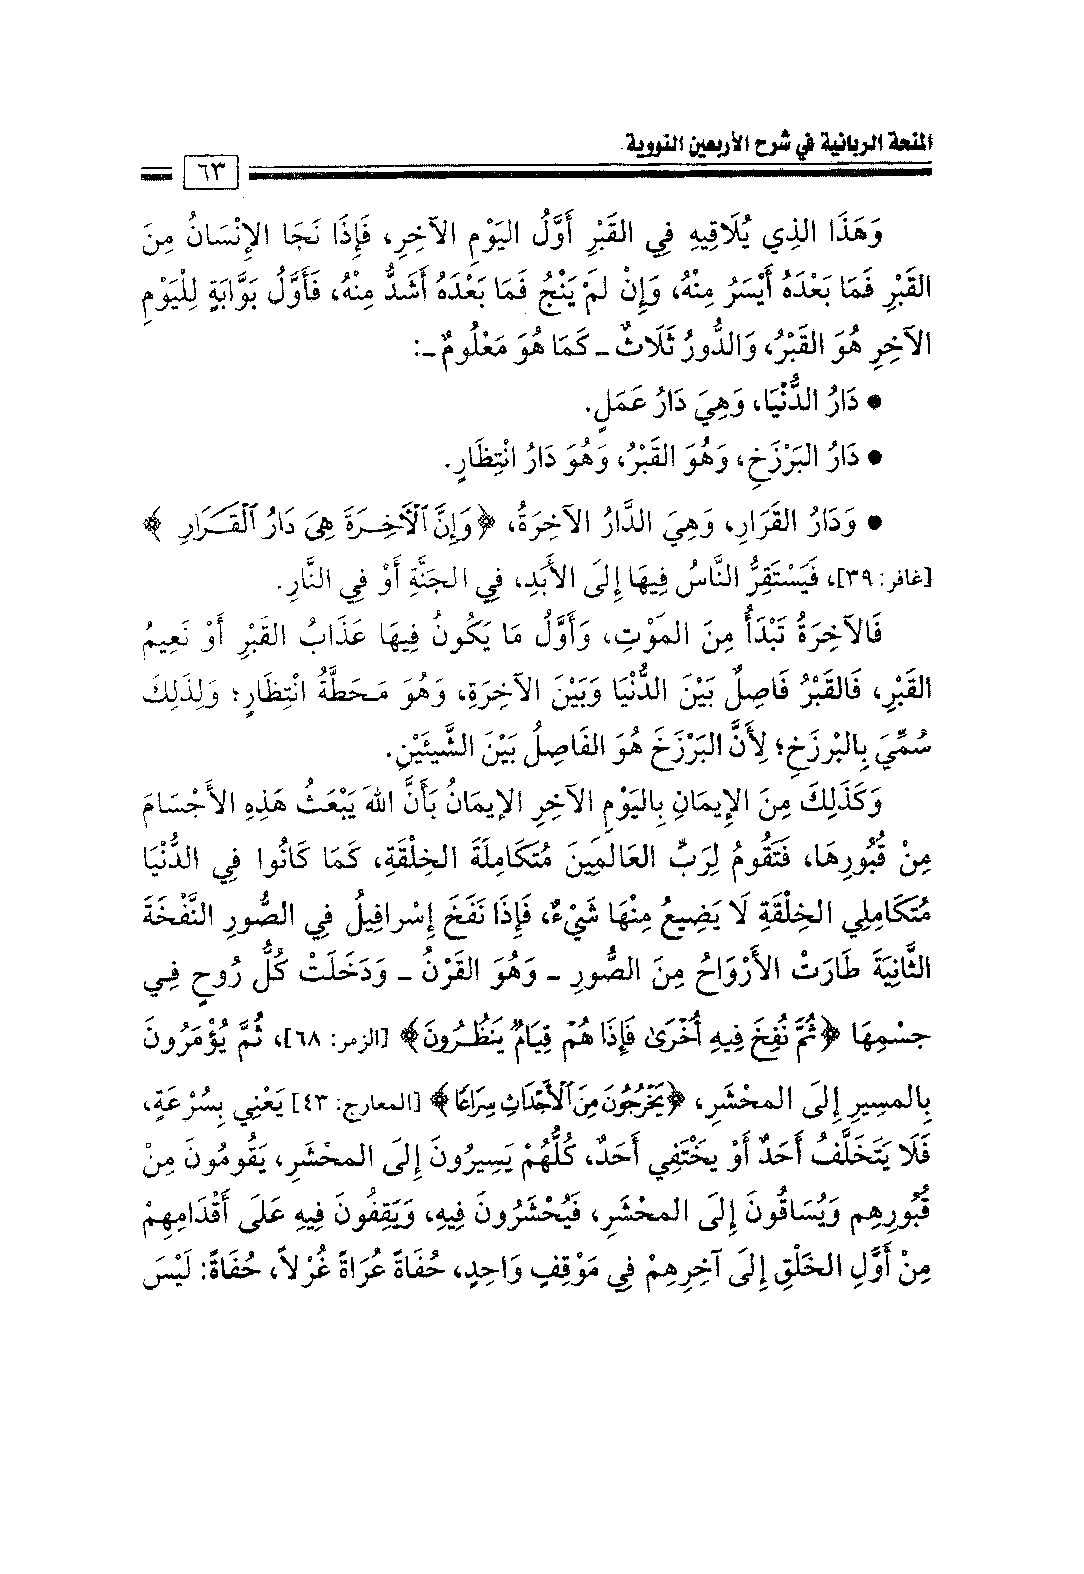 المنحة الربانية في شرح الأربعين النووية
٦٣
وَهَذَا الذِي يُلَاقِيهِ فِي القَبْرِ أَوَّلُ اليَوْمِ الآخِرِ، فَإِذَا نَجَا الإِنْسَانُ مِنَ
القَبْرِ فَمَا بَعْدَهُ أَيْسَرُ مِنْهُ، وَإِنْ لَمْ يَنْجُ فَمَا بَعْدَهُ أَشَدُّ مِنْهُ، فَأَوَّلُ بَوَّابَةٍ لِلْيَوْمِ
الآخِرِ هُوَ القَبْرُ، وَالدُّورُ ثَلَاثٌ ـ كَمَا هُوَ مَعْلُومٌ ـ:
• دَارُ الدُّنْيَا، وَهِيَ دَارُ عَمَلٍ.
• دَارُ البَرْزَخِ، وَهُوَ القَبْرُ، وَهُوَ دَارُ انْتِظَارٍ.
• وَدَارُ القَرَارِ، وَهِيَ الدَّارُ الآخِرَةُ، ﴿وَإِنَّ ٱلْآخِرَةَ هِىَ دَارُ ٱلْقَرَارِ﴾
[غافر: ٣٩]، فَيَسْتَقِرُّ النَّاسُ فِيهَا إِلَى الأَبَدِ، فِي الجَنَّةِ أَوْ فِي النَّارِ.
فَالآخِرَةُ تَبْدَأُ مِنَ المَوْتِ، وَأَوَّلُ مَا يَكُونُ فِيهَا عَذَابُ القَبْرِ أَوْ نَعِيمُ
القَبْرِ، فَالقَبْرُ فَاصِلٌ بَيْنَ الدُّنْيَا وَبَيْنَ الآخِرَةِ، وَهُوَ مَحَطَّةُ انْتِظَارٍ؛ وَلِذَلِكَ
سُمِّيَ بِالبْرزَخِ؛ لِأَنَّ البَرْزَخَ هُوَ الفَاصِلُ بَيْنَ الشَّيئَيْنِ.
وَكَذَلِكَ مِنَ الإِيمَانِ بِاليَوْمِ الآخِرِ الإِيمَانُ بَأَنَّ اللهَ يَبْعَثُ هَذِهِ الأَجْسَامَ
مِنْ قُبُورِهَا، فَتَقُومُ لِرَبِّ العَالَمِينَ مُتَكَامِلَةَ الخِلْقَةِ، كَمَا كَانُوا فِي الدُّنْيَا
مُتَكَامِلِي الخِلْقَةِ لَا يَضِيعُ مِنْهَا شَيْءٌ، فَإِذَا نَفَخَ إِسْرافِيلُ فِي الصُّورِ النَّفْخَةَ
الثَّانِيَةَ طَارَتْ الأَرْوَاحُ مِنَ الصُّورِ ـ وَهُوَ القَرْنُ ـ وَدَخَلَتْ كُلُّ رُوحٍ فِي
جِسْمِهَا ﴿ثُمَّ نُفِخَ فِيهِ أُخْرَىٰ فَإِذَا هُمْ قِيَامٌ يَنظُرُونَ﴾ [الزمر: ٦٨]، ثُمَّ يُؤْمَرُونَ
بِالمسِيرِ إِلَى المحْشَرِ، ﴿يَخْرُجُونَ مِنَ ٱلْأَجْدَاثِ سِرَاعًا﴾ [المعارج: ٤٣] يَعْنِي بِسُرْعَةٍ،
فَلَا يَتَخَلَّفُ أَحَدٌ أَوْ يخْتَفِي أَحَدٌ، كُلُّهُمْ يَسِيرُونَ إِلَى المحْشَرِ، يَقُومُونَ مِنْ
قُبُورِهِم وَيُسَاقُونَ إِلَى المحْشَرِ، فَيُحْشَرُونَ فِيهِ، وَيَقِفُونَ فِيهِ عَلَى أَقْدَامِهِمْ
مِنْ أَوَّلِ الخَلْقِ إِلَى آخِرِهِمْ فِي مَوْقِفٍ وَاحِدٍ، حُفَاةً عُرَاةً غُرْلاً، حُفَاةً: لَيْسَ